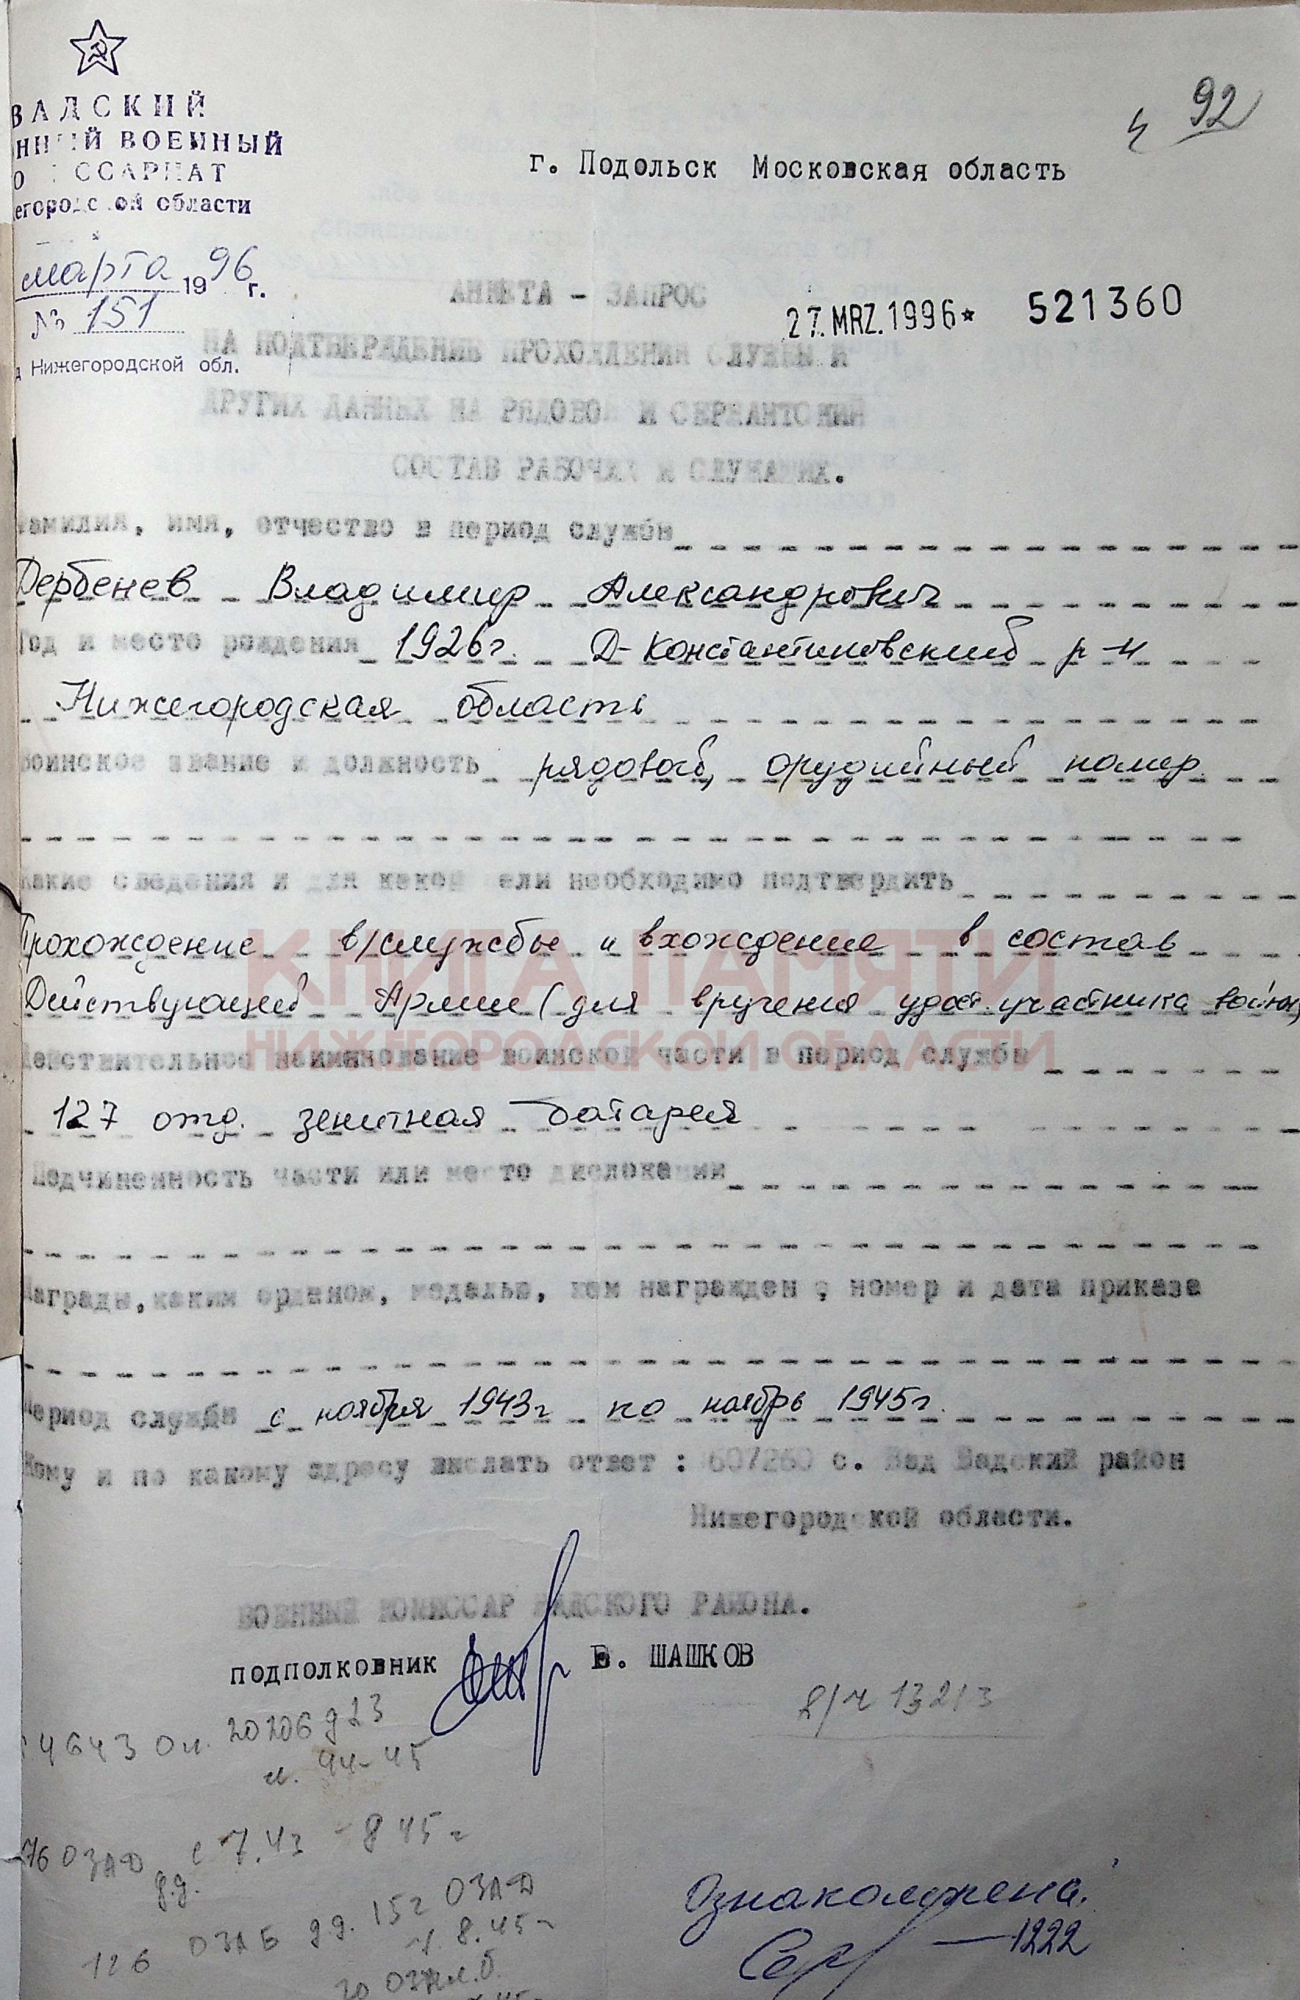 ВАДСКИЙ
ВОЕННЫЙ
области
марта 1996 г.
№ 151
Нижегородской обл.
92
г. Подольск Московская область
27. MRZ. 1996* 521360
АНКЕТА - ЗАПРОС
НА ПОДТВЕРЖДЕНИЕ ПРОХОЖДЕНИЯ СЛУЖБЫ И
ДРУГИХ ДАННЫХ НА РЯДОВОЙ И СЕРЖАНТСКИЙ
СОСТАВ РАБОЧИХ И СЛУЖАЩИХ.
Фамилия, имя, отчество в период службы
Дербенев Владимир Александрович
Год и место рождения 1926г. Д-Константиновский р-н
Нижегородская область
Воинское звание и должность рядовой, орудийный номер
Какие сведения и для какой цели необходимо подтвердить
Прохождение в/службы и вхождение в состав
Действующей Армии (для вручения удост. участника войны)
Действительное наименование воинской части в период службы
127 отд. зенитная батарея
Подчиненность части или место дислокации
Награды, каким орденом, медалью, кем награжден, номер и дата приказа
Период службы с ноября 1943г по ноябрь 1945г.
Кому и по какому адресу выслать ответ: 607260 с. Вад Вадский район
Нижегородской области.
ВОЕННЫЙ КОМИССАР ВАДСКОГО РАЙОНА.
подполковник В. ШАШКОВ
в/ч 13213
4643 Оп. 20206 д 23
л. 44-45
76 ОЗАД с 7.43 - 8 45 г
д.д.
126 ОЗАБ дд. 152 ОЗАД
8.45 г
Ознакомлена:
1222
КНИГА ПАМЯТИ
НИЖГОРОДСКОЙ ОБЛАСТИ